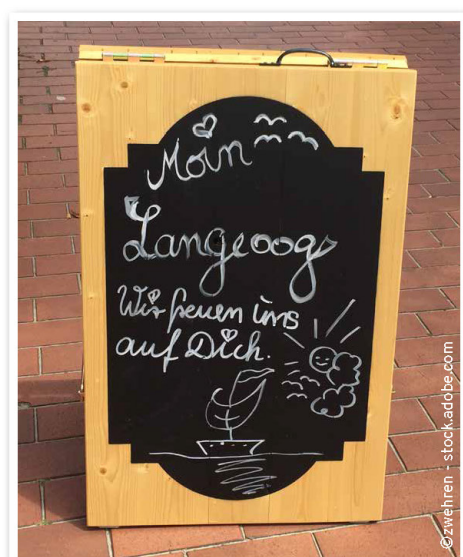 Moin
Langeoog
Wir freuen uns
auf Dich.
©zwehren - stock.adobe.com